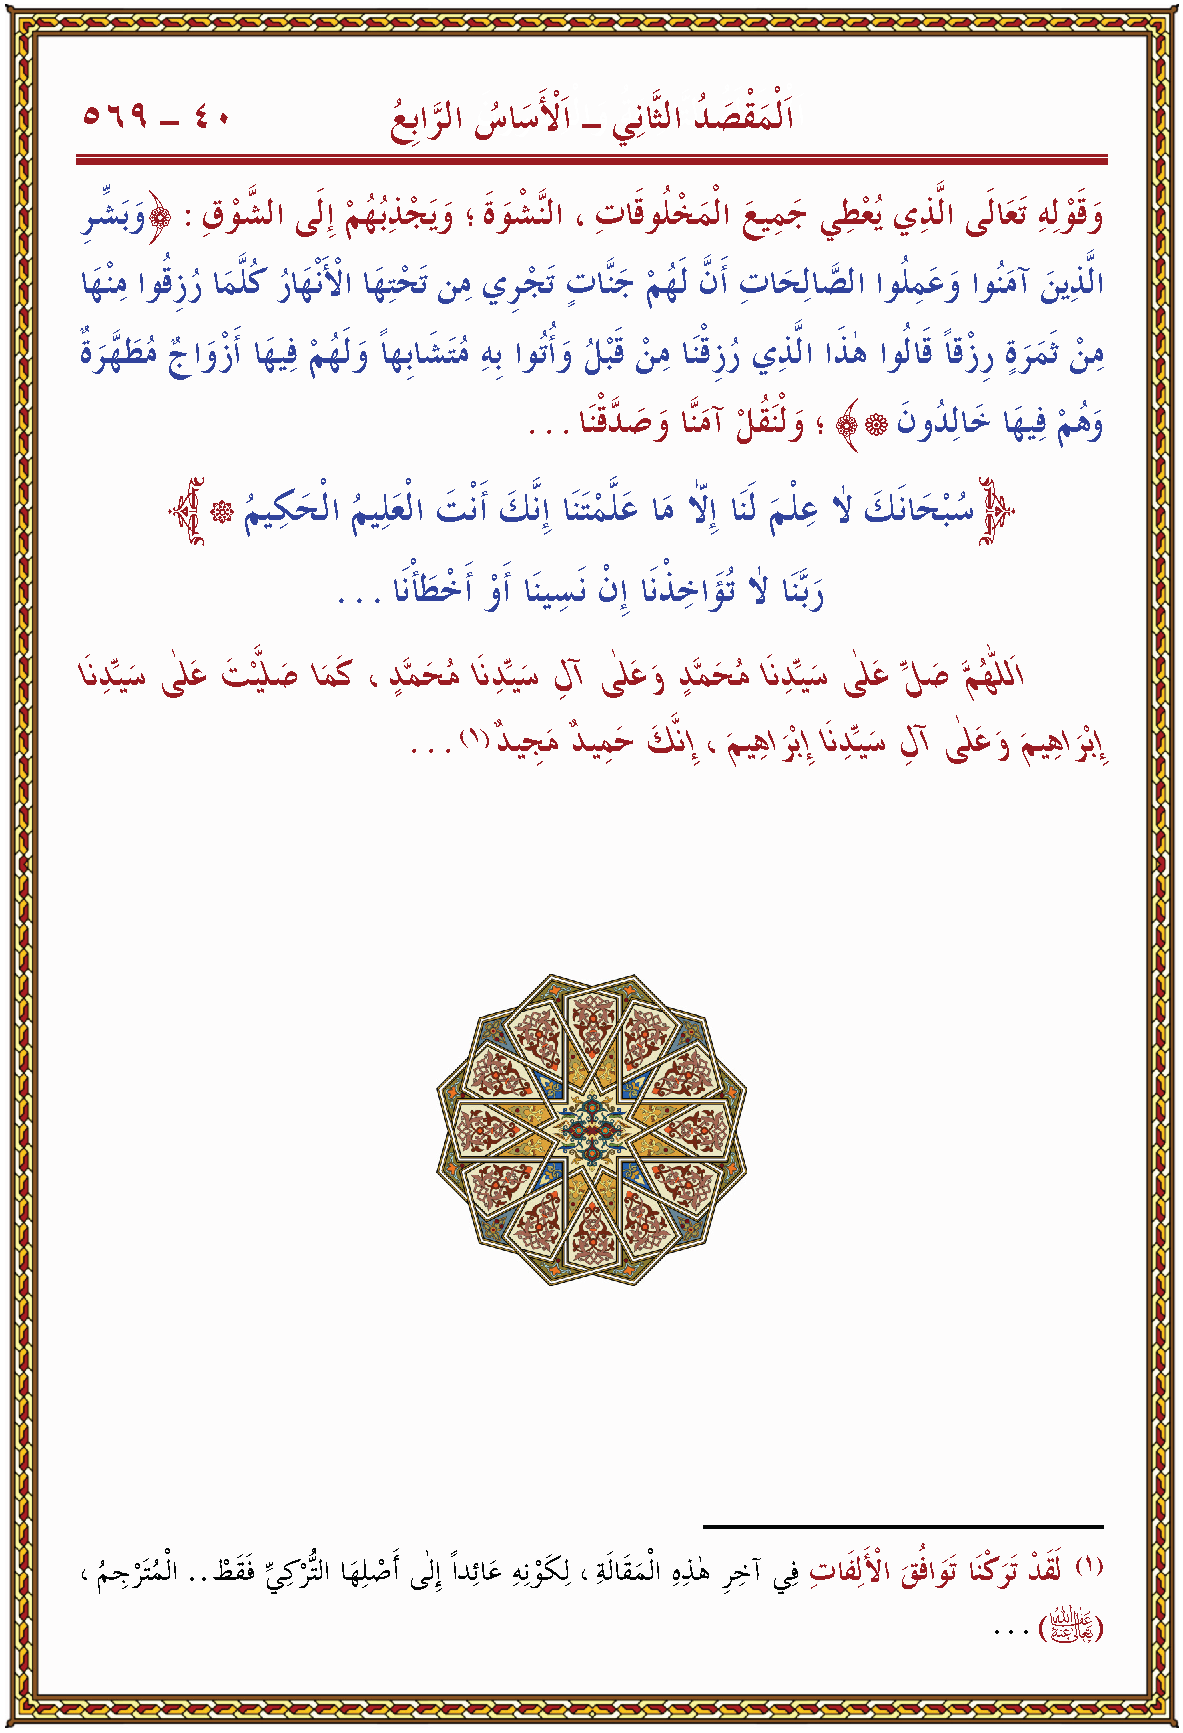 اَلْمَقْصَدُ الثَّانِي – اَلْأَسَاسُ الرَّابِعُ ٤٠ – ٥٦٩
وَقَوْلِهِ تَعَالَى الَّذِي يُعْطِي جَمِيعَ الْمَخْلُوقَاتِ ، النَّشْوَةَ ؛ وَيَجْذِبُهُمْ إِلَى الشَّوْقِ : ﴿وَبَشِّرِ
الَّذِينَ آمَنُوا وَعَمِلُوا الصَّالِحَاتِ أَنَّ لَهُمْ جَنَّاتٍ تَجْرِي مِن تَحْتِهَا الْأَنْهَارُ كُلَّمَا رُزِقُوا مِنْهَا
مِنْ ثَمَرَةٍ رِزْقاً قَالُوا هٰذَا الَّذِي رُزِقْنَا مِنْ قَبْلُ وَأُتُوا بِهِ مُتَشَابِهاً وَلَهُمْ فِيهَا أَزْوَاجٌ مُطَهَّرَةٌ
وَهُمْ فِيهَا خَالِدُونَ ۞﴾ ؛ وَلْنَقُلْ آمَنَّا وَصَدَّقْنَا ...
﴿سُبْحَانَكَ لاٰ عِلْمَ لَنَا إِلاّٰ مَا عَلَّمْتَنَا إِنَّكَ أَنْتَ الْعَلِيمُ الْحَكِيمُ ۞﴾
رَبَّنَا لاٰ تُؤَاخِذْنَا إِنْ نَسِينَا أَوْ أَخْطَأْنَا ...
اَللّٰهُمَّ صَلِّ عَلٰى سَيِّدِنَا مُحَمَّدٍ وَعَلٰى آلِ سَيِّدِنَا مُحَمَّدٍ ، كَمَا صَلَّيْتَ عَلٰى سَيِّدِنَا
إِبْرَاهِيمَ وَعَلٰى آلِ سَيِّدِنَا إِبْرَاهِيمَ ، إِنَّكَ حَمِيدٌ مَجِيدٌ (١) ...
(١) لَقَدْ تَرَكْنَا تَوَافُقَ الْأَلِفَاتِ فِي آخِرِ هٰذِهِ الْمَقَالَةِ ، لِكَوْنِهِ عَائِداً إِلٰى أَصْلِهَا التُّرْكِيِّ فَقَطْ .. الْمُتَرْجِمُ ،
(عَفَا اللّٰهُ تَعَالٰى عَنْهُ) ...